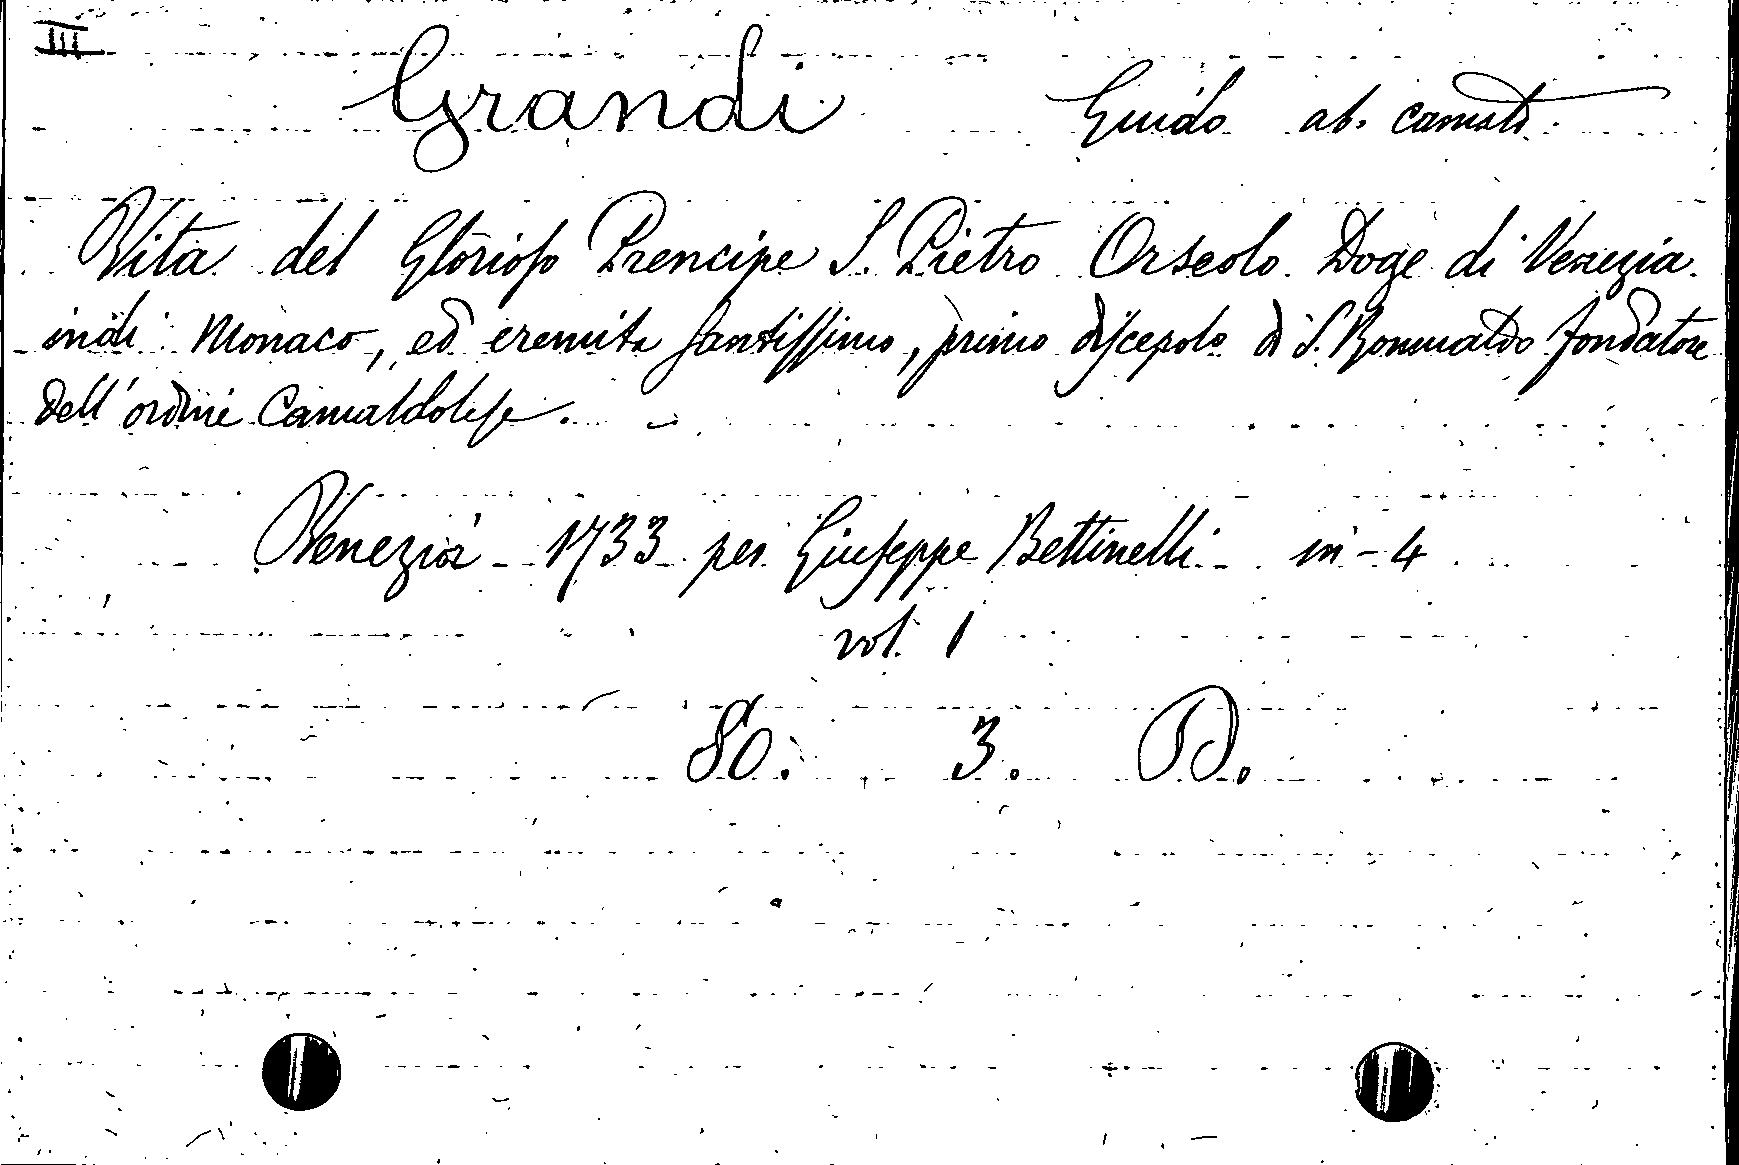 III
Grandi Guido ab. camald.
Vita del Glorioso Prencipe S. Pietro Orseolo Doge di Venezia
indi Monaco, ed eremita santissimo, primo discepolo di S. Romualdo fondatore
dell'ordine Camaldolese.
Venezia - 1733 per Giuseppe Bettinelli - in - 4
vol. 1
80. 3. D.